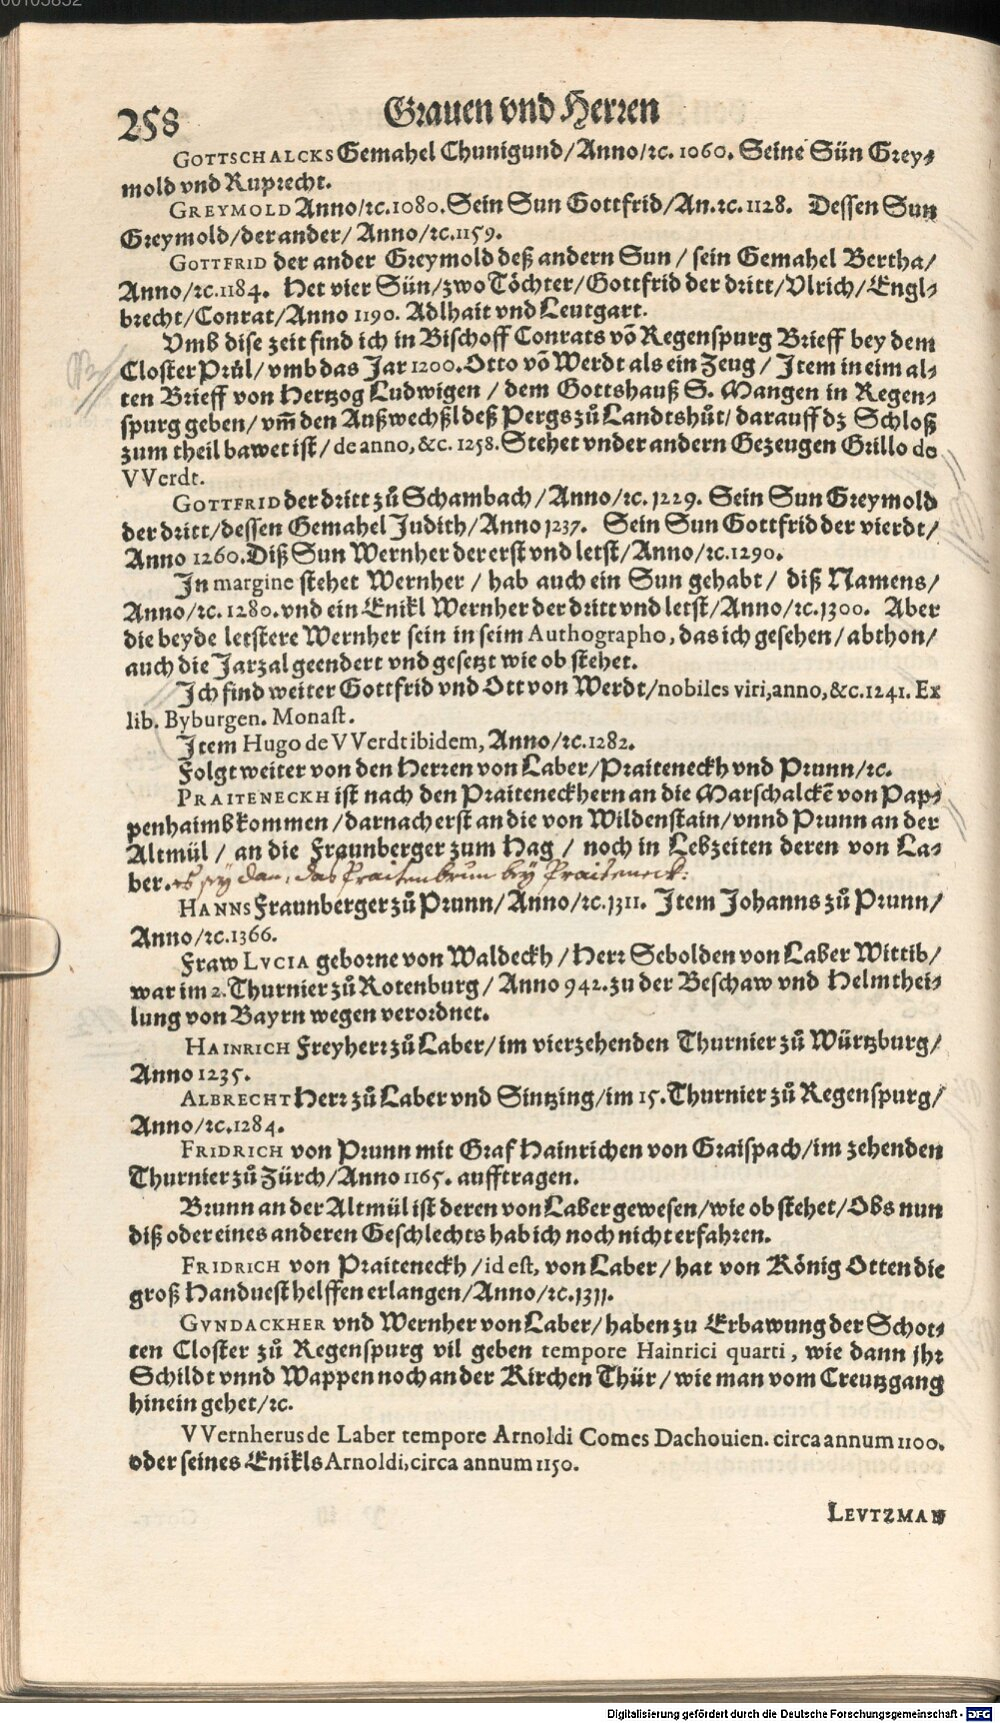 258
Grauen vnd Herren
GOTTSCHALCKS Gemahel Chunigund/Anno/ꝛc. 1060. Seine Sün Grey⸗
mold vnd Ruprecht.
GREYMOLD Anno/ꝛc. 1080. Sein Sun Gottfrid/An.ꝛc. 1128. Dessen Sun
Greymold/der ander/ Anno/ꝛc. 1159.
GOTTFRID der ander Greymold deß andern Sun / sein Gemahel Bertha/
Anno/ꝛc. 1184. Het vier Sün/zwo Töchter/Gottfrid der dritt/Vlrich/Engl⸗
brecht/Conrat/Anno 1190. Adlhait vnd Leutgart.
Vmb dise zeit find ich in Bischoff Conrats võ Regenspurg Brieff bey dem
Closter Průl/ vmb das Jar 1200. Otto võ Werdt als ein Zeug / Item in eim al⸗
ten Brieff von Hertzog Ludwigen / dem Gottshauß S. Mangen in Regen⸗
spurg geben/ vm̃ den Außwechßl deß Pergs zů Landtshůt/ darauff dz Schloß
zum theil bawet ist/ de anno, &c. 1258. Stehet vnder andern Gezeugen Grillo de
VVerdt.
GOTTFRID der dritt zů Schambach/Anno/ꝛc. 1229. Sein Sun Greymold
der dritt/dessen Gemahel Judith/Anno 1237. Sein Sun Gottfrid der vierdt/
Anno 1260. Diß Sun Wernher der erst vnd letst/Anno/ꝛc. 1290.
In margine stehet Wernher / hab auch ein Sun gehabt / diß Namens/
Anno/ꝛc. 1280. vnd ein Enikl Wernher der dritt vnd letst/Anno/ꝛc. 1300. Aber
die beyde letstere Wernher sein in seim Authographo, das ich gesehen/ abthon/
auch die Jarzal geendert vnd gesetzt wie ob stehet.
Ich find weiter Gottfrid vnd Ott von Werdt/nobiles viri, anno, &c. 1241. Ex
lib. Byburgen. Monast.
Item Hugo de VVerdt ibidem, Anno/ꝛc. 1282.
Folgt weiter von den Herren von Laber/Praiteneckh vnd Prunn/ꝛc.
PRAITENECKH ist nach den Praiteneckhern an die Marschalckẽ von Pap⸗
penhaimb kommen /darnach erst an die von Wildenstain/vnnd Prunn an der
Altmül / an die Fraunberger zum Hag / noch in Lebzeiten deren von La⸗
ber. es sey dan, das Praitenbrun bey Praiteneck.
HANNS Fraunberger zů Prunn/Anno/ꝛc. 1311. Item Johanns zů Prunn/
Anno/ꝛc. 1366.
Fraw LVCIA geborne von Waldeckh /Herr Sebolden von Laber Wittib/
war im 2. Thurnier zů Rotenburg/ Anno 942. zu der Beschaw vnd Helmthei⸗
lung von Bayrn wegen verordnet.
HAINRICH Freyherr zů Laber/im vierzehenden Thurnier zů Würtzburg/
Anno 1235.
ALBRECHT Herr zů Laber vnd Sintzing/im 15. Thurnier zů Regenspurg/
Anno/ꝛc. 1284.
FRIDRICH von Prunn mit Graf Hainrichen von Graispach/im zehenden
Thurnier zů Zürch/Anno 1165. aufftragen.
Brunn an der Altmül ist deren von Laber gewesen/wie ob stehet/Obs nun
diß oder eines anderen Geschlechts hab ich noch nicht erfahren.
FRIDRICH von Praiteneckh /id est, von Laber/ hat von König Otten die
groß Handuest helffen erlangen/Anno/ꝛc. 1311.
GVNDACKHER vnd Wernher von Laber/ haben zu Erbawung der Schot⸗
ten Closter zů Regenspurg vil geben tempore Hainrici quarti, wie dann jhr
Schildt vnnd Wappen noch an der Kirchen Thür / wie man vom Creutzgang
hinein gehet/ꝛc.
VVernherus de Laber tempore Arnoldi Comes Dachouien. circa annum 1100.
oder seines Enikls Arnoldi, circa annum 1150.
LEVTZMAN
Digitalisierung gefördert durch die Deutsche Forschungsgemeinschaft - DFG